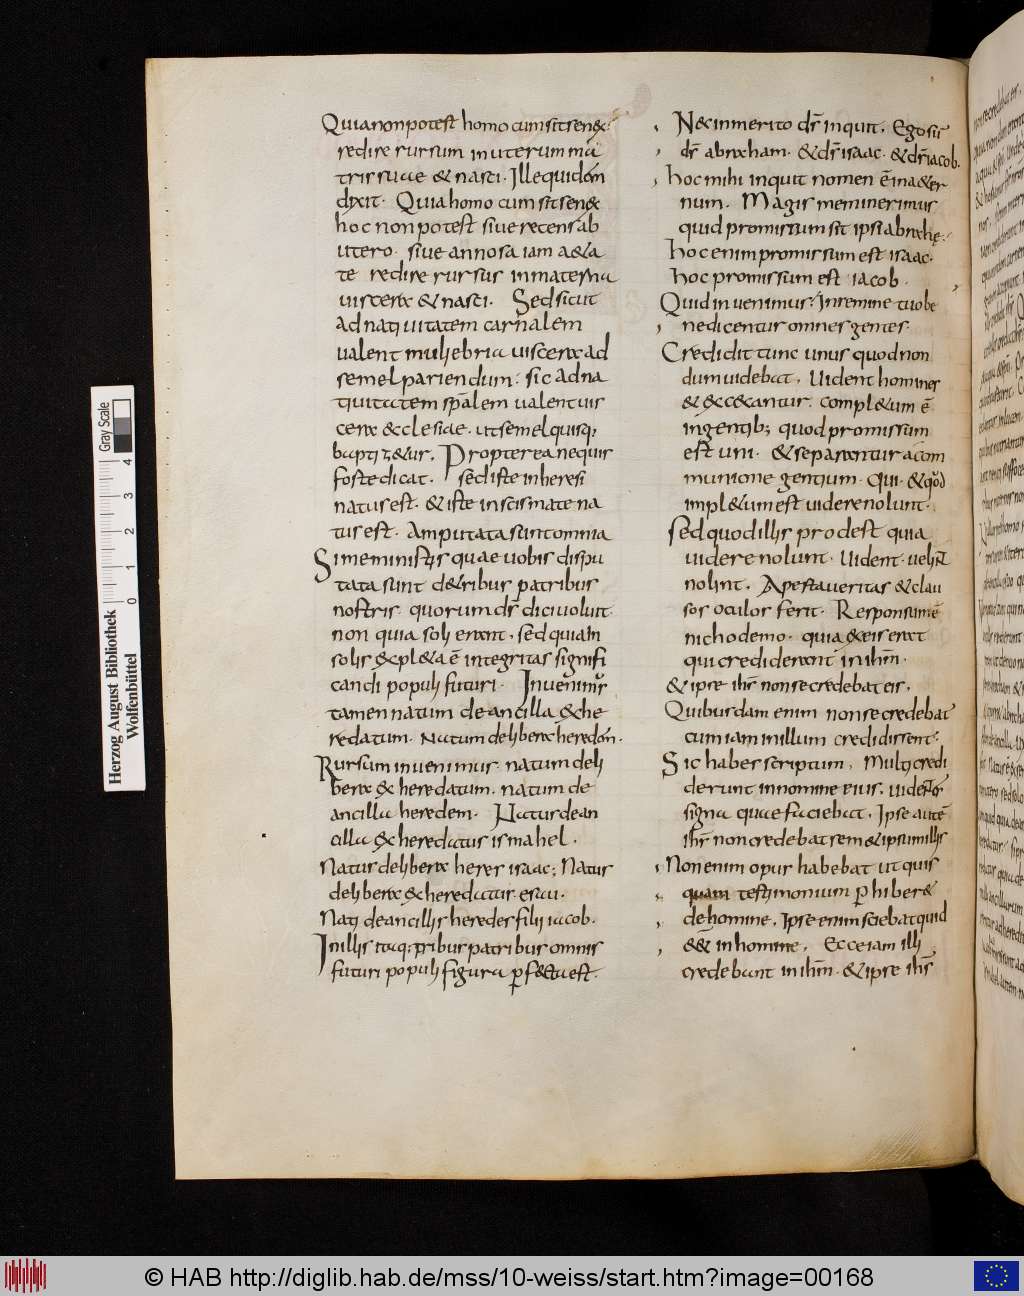 Quia non potest homo cum sit senex
redire rursum in uterum ma
tris suae & nasci. Ille quidem
dixit. Quia homo cum sit senex
hoc non potest siue recens ab
utero. siue annosa iam aeta
te redire rursus in materna
uiscera & nasci. Sed sicut
ad natiuitatem carnalem
ualent muliebria uiscera ad
semel pariendum: sic ad na
tiuitatem spalem ualent uis
cera ecclesiae. ut semel quisq;
baptiz&ur. Propterea nequis
forte dicat. sed iste in heresi
natus est. & iste in scismate na
tus est. Amputata sunt omnia
Si meministis quae uobis dispu
tata sunt de tribus patribus
nostris. quorum dr̄ dici uoluit.
non quia soli erant. sed quia in
solis expl&a ē integritas signifi
candi populi futuri. Inuenimus
tamen natum de ancilla exhe
redatum. Natum de libera heredem.
Rursum inuenimus natum de li
bera exheredatum. natum de
ancilla heredem. Natus de an
cilla exheredatus ismahel.
Natus de libera heres isaac; Natus
de libera exheredatus esau.
Nati de ancillis heredes filii iacob.
In illis itaq; tribus patribus omnis
futuri populi figura perfecta est.
N& inmerito dr̄ inquit. Ego sū
dr̄ abraham. & dr̄ isaac. & dr̄ iacob.
hoc mihi inquit nomen ē in a&er
num. Magis meminerimus
quid promissum sit ipsi abrahę:
hoc enim promissum est isaac.
hoc promissum est iacob.
Quid inuenimus? In semine tuo be
nedicentur omnes gentes.
Credidit tunc unus quod non
dum uidebat. Uident homines
& excecantur. compl&um ē
in gentib; quod promissum
est uni. & separantur a com
munione gentium. qui. & quod
impl&um est uidere nolunt.
Sed quod illis prodest quia
uidere nolunt. Uident. uelint
nolint. Aperta ueritas & clau
sos oculos ferit. Responsum ē
nichodemo. quia ex eis erat
qui crediderant in ihm̄.
& ipse ihs̄ non se credebat eis.
Quibusdam enim non se credebat
cum iam in illum credidissent:
Sic habes scriptum. Multi credi
derunt in nomine eius. uidentes
signa quae faciebat. Ipse autē
ihs̄ non credebat sem&ipsum illis
Non enim opus habebat ut quis
quam testimonium perhiber&
de homine. Ipse enim sciebat quid
ess& in homine. Ecce iam illi
credebant in ihm̄. & ipse ihs̄
Herzog August Bibliothek
Wolfenbüttel
0 1 2 3 4
Gray Scale
© HAB http://diglib.hab.de/mss/10-weiss/start.htm?image=00168